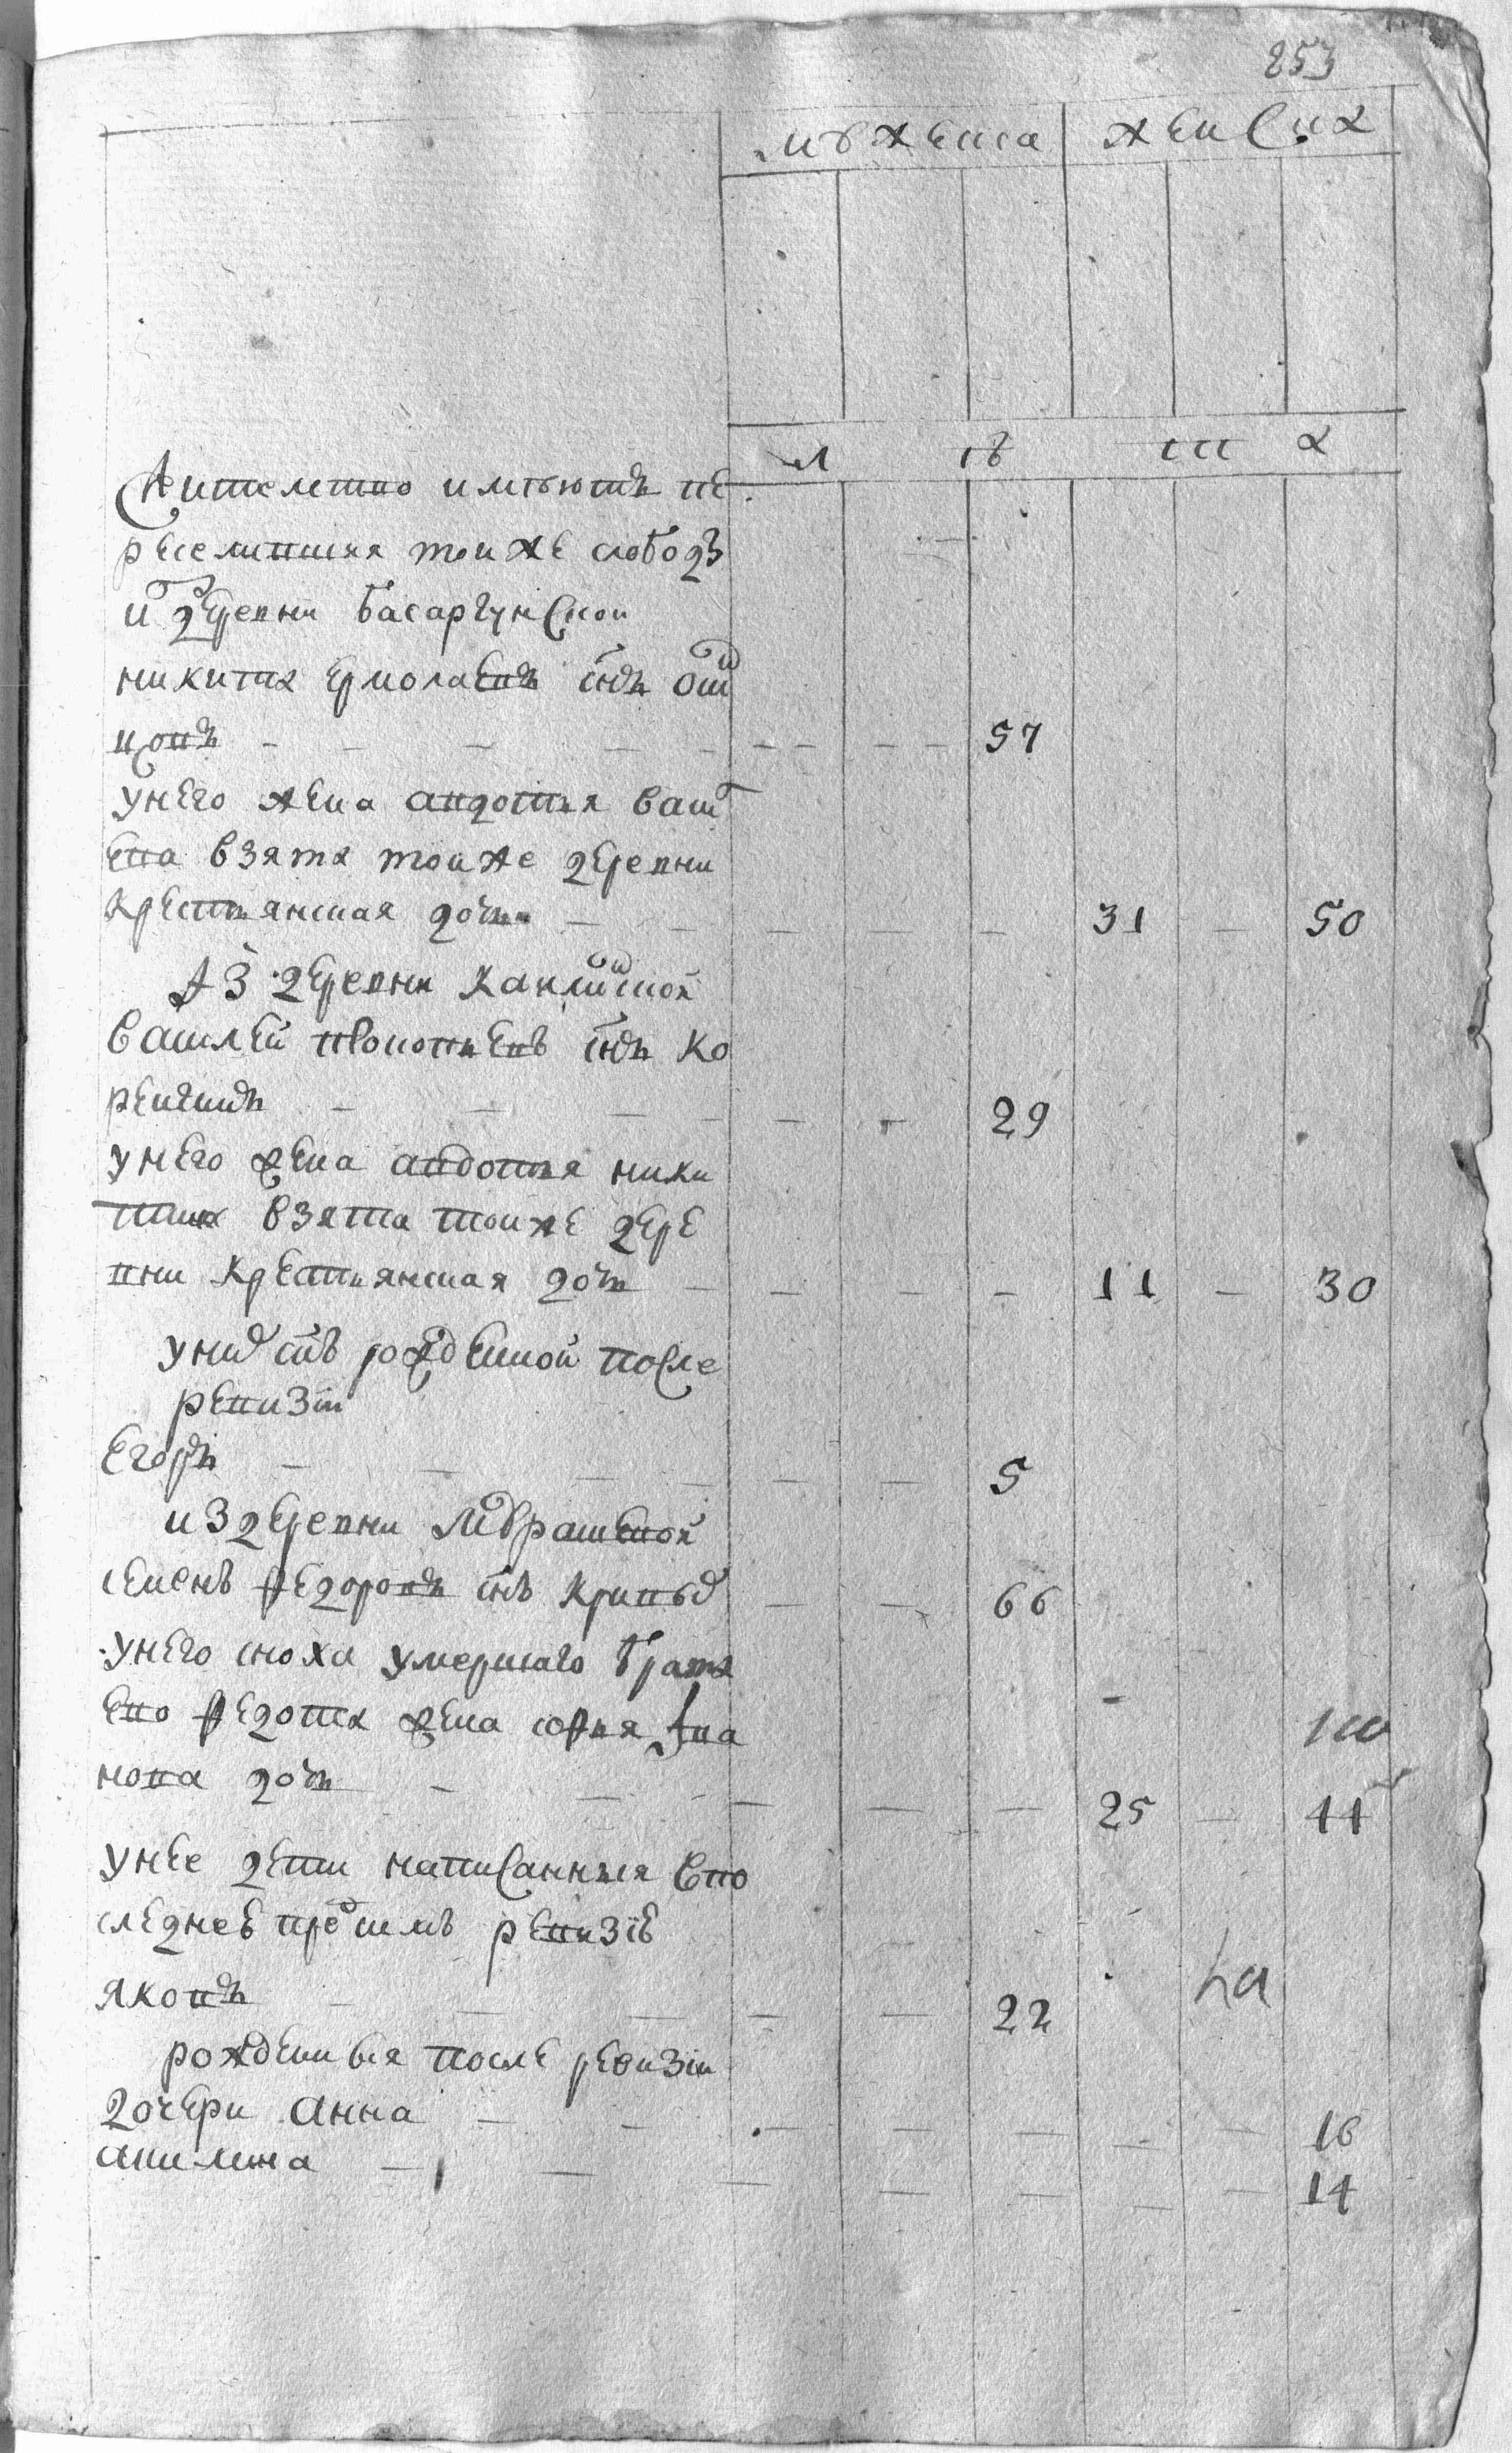 253
мужеска женска
д в ш а
Жителство имѣютъ пе
реселившия тои же слободы
из деревни Басаргунской
никита Ермолаевъ сынъ
цовъ - - - 57
у него жена авдотья васи
ева взята тои же деревни
крестьянская дочь - - - 31 - 50
Из деревни
василей прокопьевъ сынъ Ко
- - - 29
у него жена авдотья ники
тина взята тои же дере
вни крестьянская дочь - - - 11 - 30
у них сынъ рожденной после
ревизiи
Егоръ - - - 5
из деревни Мурашевой
семенъ федоровъ сынъ кривых - - 66
у него сноха умершаго брата
ево федота жена софья Ива
нова дочь - - - 25 - 44
у нее дети написанныя в по
следнеѣ пред симъ ревизiѣ
яковъ - - - 22
рожденныя после ревизiи
дочери Анна - - - 16
акилина - - - 14